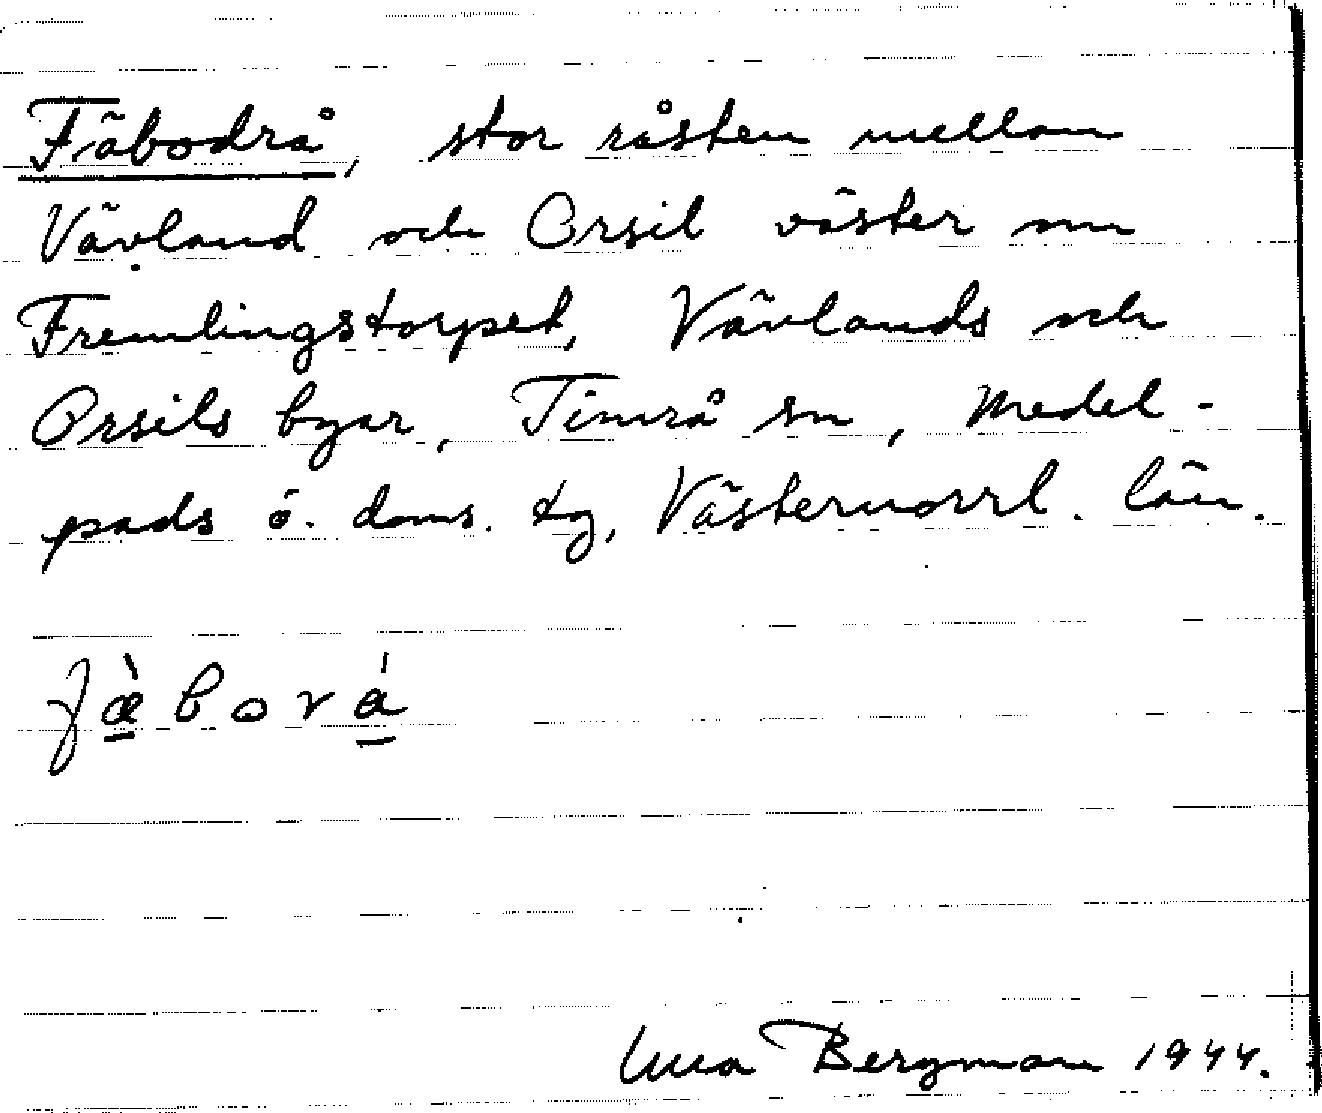 Fäbodrå, stor råsten mellan
Vävland och Orsil väster om
Fremlingstorpet, Vävlands och
Orsils byar, Timrå sn, Medel-
pads ö. doms. tg, Västernorrl. län.
Bergman 1944.